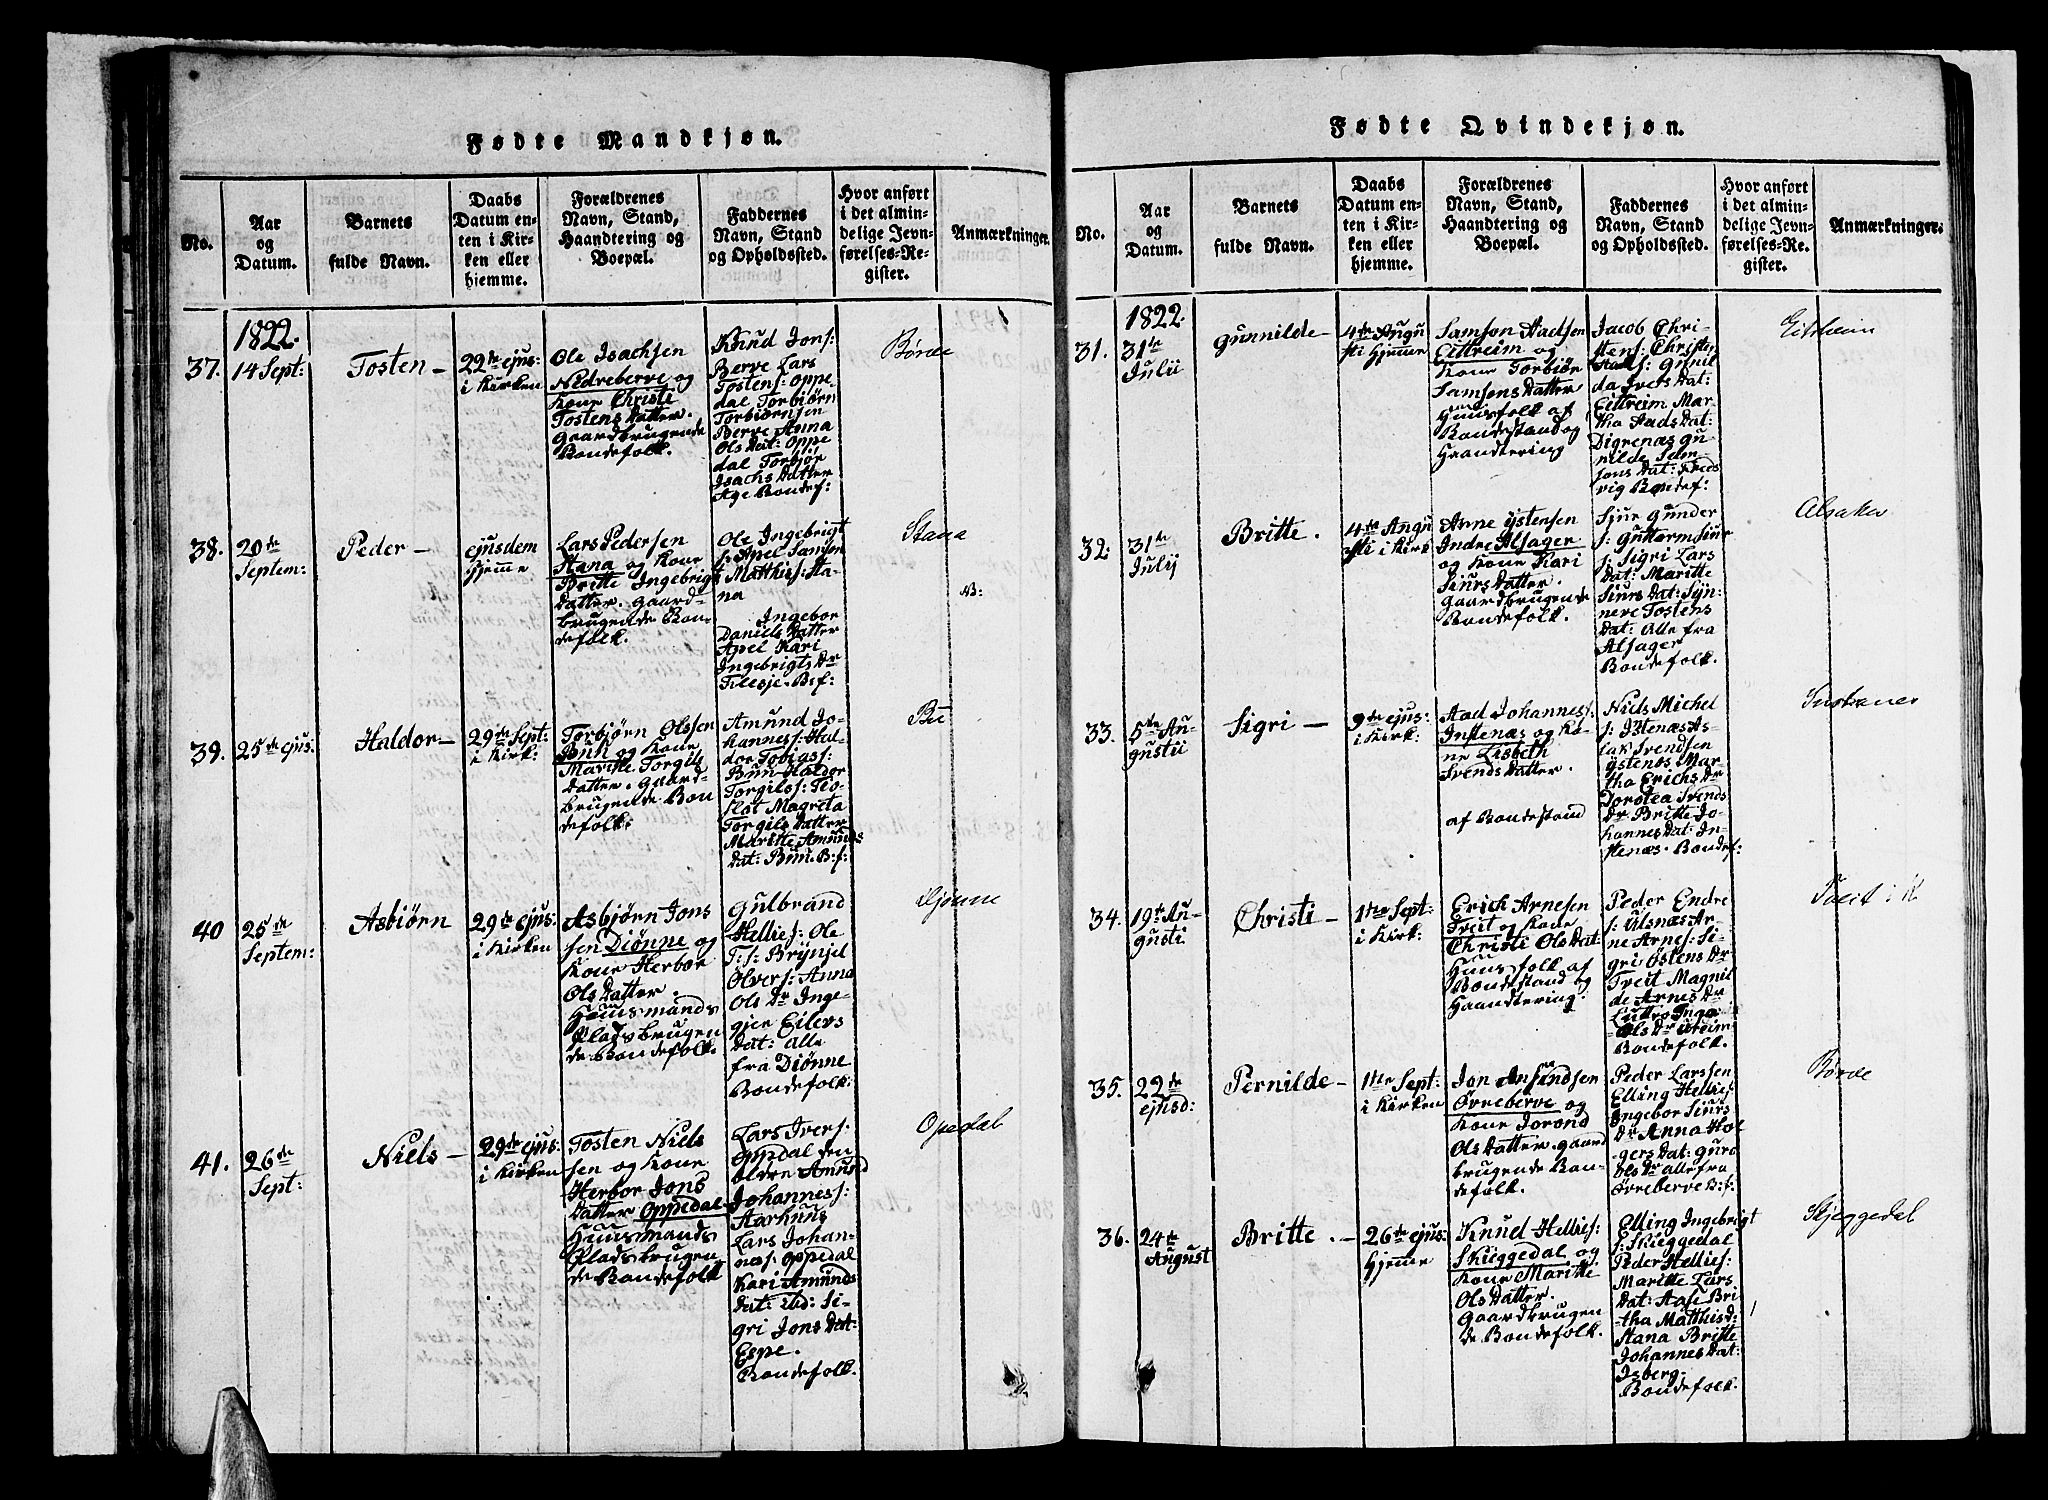 Fødte Mandkjøn.
No.
Aar
og
Datum.
Barnets
fulde Navn.
Daabs
Datum en-
ten i Kir-
ken eller
hjemme.
Forældrenes
Navn, Stand,
Haandtering og
Boepæl.
Faddernes
Navn, Stand
og Opholdssted.
Hvor anført
i det almin-
delige Jevn-
førelses-Re-
gister.
Anmærkninger.
1822.
37.
14 Sept:
Tosten –
29de ejus:
i Kirken
Ole Isachsen
Nedreberve og
Kone Christi
Tostens Datter.
Gaardbrugende
Bondefolk.
Knud Jons:
Berve Lars
Tostens: Oppe
dal Torbiørn
Torbiørnsen
Berve Anna
Ols Dat: Oppe
dal Torbjør
Isachs Datter
Age Bondef:
Børve
38.
20de
Septem:
Peder –
ejusdem
hjeme
Lars Pedersen
Stana og Kone
Britte Ingebrigt
Datter. Gaard-
brugende Bon-
defolk.
Ole Ingebrigt
s: Apel Samson
Matthies: Sta-
na
Ingebor
Daniels Datter
Apel Kari
Ingebrigts Dr
Tillesje. B:f:
Stana
B:
39.
25de ejus:
Haldor –
29de Sept:
i Kirk:
Torbjørn Olssen
Buh og Kone
Maritte Torgils
Datter. Gaard-
brugende Bon
defolk:
Amund Jo-
hanness: Hal-
dor Tobiass:
Bun Haldor
Torgilss: Flo-
flot Magreta
Torgils Datter
Maritte Amunds
Dat: Bun. B:f:
Bu
40
25de
Septem:
Asbiørn
29de ejus:
i Kirken
Asbjørn Jons
sen Diønne og
Kone Herbor
Ols Datter.
Huusmands
Pladsbrugen
de Bondefolk.
Gulbrand
Hellies: Ole
J:s: Brynjel
Olvers: Anna
Ols Dr Inge-
gjer Eilevs
Dat: Alle
fra Diønne
Bondefolk:
Djønne
41.
26de
Sept:
Niels –
29de ejus:
i Kirken
Tosten Niels
sen og Kone
Herbor Jons
Datter Oppedal
Huusmands
Pladsbrugen
de Bondefolk
Lars Ivers:
Oppdal den
olden Amund
Johanness:
Aarhuus
Lars Johan-
nas: Oppedal
Kari Amunds
Dat: ibd: Si-
gri Jons Dat-
Espe.
Bondefolk.
Opedal
Fødte Qvindekjøn.
No.
Aar
og
Datum.
Barnets
fulde Navn.
Daabs
Datum en-
ten i Kir-
ken eller
hjemme.
Forældrenes
Navn, Stand,
Haandtering og
Boepæl.
Faddernes
Navn, Stand
og Opholdssted.
Hvor anført
i det almin-
delige Jevn-
førelses-Re-
gister.
Anmærkninger.
1822.
31.
31te
Julii
Gunnilde –
4de Augu
sti Hjemme
Samson Aadsen
Eittreim og
Kone Torbiør
Samsons Datter
Huusfolk af
Bondestand og
Haandtering
Jacob Chri-
stens: Christen
Aads: Gunil
da Ivers Dat:
Eittreim Mar-
tha Aads Dat:
Digrenæs Gu-
nilde Sam-
sons Dat:
vig Bondef:
Eitrheim
32.
31te
Julij
Britte.
4de Augu
sti i Kirk
Arne Ystensen
Indre Alsager
og Kone Kari
Siurs Datter.
Gaardbrugende
Bondefolk.
Sjur Gunder
s: Guttorm Siur
s: Sigri Lars
Dat: Maritte
Siurs Dat: Syn-
neve Tostens
Dat: Alle fra
Alsager
Bondefolk.
Alsaker
33.
5te Au-
gustii
Sigri –
9de ejus:
i Kirk:
Aad Johannes:
Instenæs og Ko-
ne Lisbeth
Svends Datter.
af Bondestand
Niels Michel
s: Istenæs As-
lak Svendsen
Ystenæs Mar-
tha Erichs Dr
Dorotea Svends
Dr Britte Jo-
hannes Dat: In-
stenæs. Bondef:
34.
19de Au-
gusti
Christi –
1ste Sept:
i Kirk:
Erich Arnesen
Treit og Kone
Christi Ols Dat:
Huusfolk af
Bondestand og
Haandtering.
Peder Endre
s: Ulsnæs Ar-
ne Arnes: Si-
gri Ostens Dr
Treit Magnil
de Arnes Dr
Luttro Inga
Ols Dr Utreim
Bondefolk.
Tveit i K
35.
22de
ejusd:
Pernilde –
1ste Sept:
i Kirken
Jon Amundsen
Øvreberve og
Kone Jorond
Ols Datter. Gaard
brugende Bon-
defolk.
Peder Larssen
Elling Hellies:
Ingebor Siurs
Dr Anna Hol
gers Dat: Guro
Ols Dr alle fra
Øvreberve B:f:
Børve
36.
24de
August
Britte. –
26de ejus:
Hjemme
Knud Hellies:
Skieggedal og
Kone Maritte
Ols Datter.
Gaardbrugen
de Bondefolk.
Elling Ingebrigt
s: Skieggedal
Peder Hellies:
Maritte Lars
Dat: Aase Bri
tha Matthisd:
Stana Britte
Johannes Dat:
Isberg.
Bondefolk.
Skjeggedal